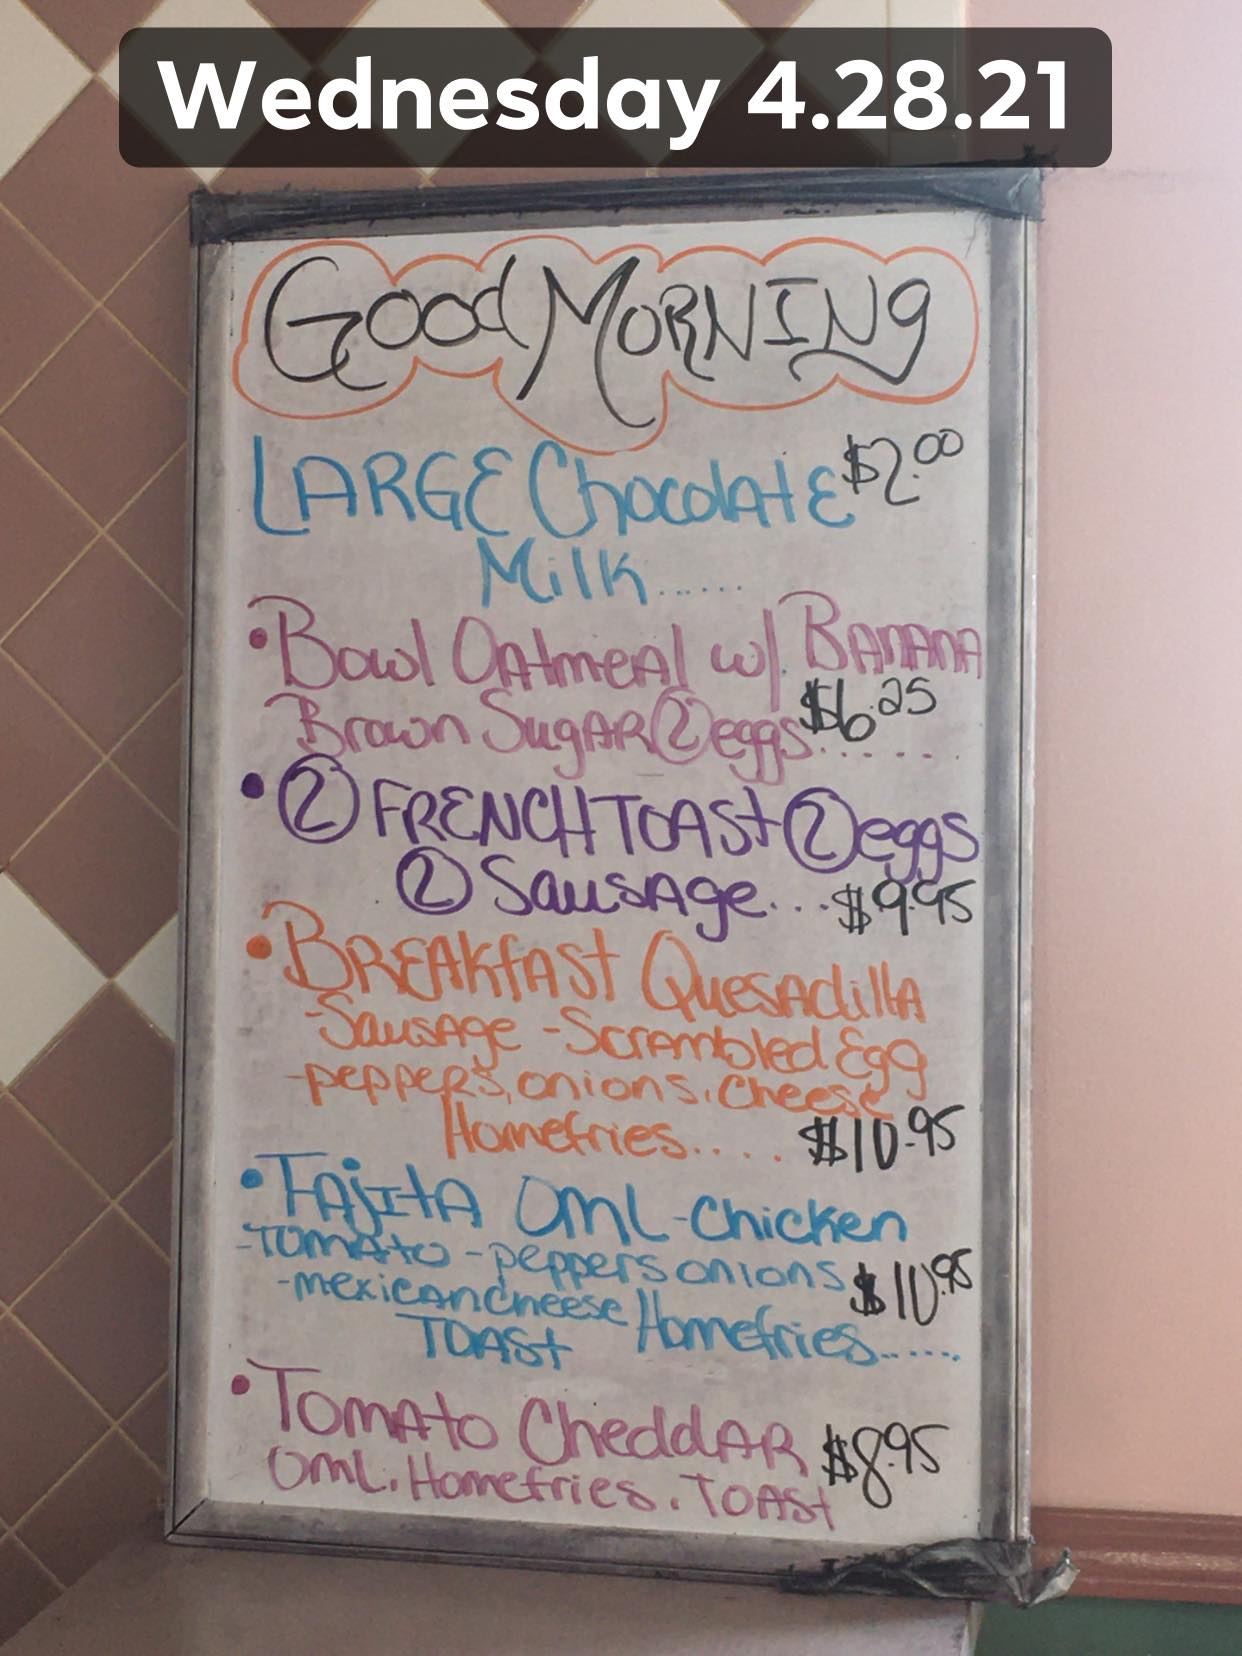 Wednesday 4.28.21
Good MORNING
LARGE Chocolate $2.00
Milk......
• Bowl Oatmeal w/. BANANA
Brown Sugar ② eggs..... $6.25
• ② FRENCH TOAST ② eggs
② Sausage... $9.95
• BREAKfAST Quesadilla
-Sausage -Scrambled Egg
-peppers, onions, Cheese
Homefries.... $10.95
• FAJITA OML-Chicken
-TOMATO -peppers onions $10.95
-mexican cheese Homefries......
TOAST
• Tomato Cheddar $8.95
OML. Homefries. TOAST